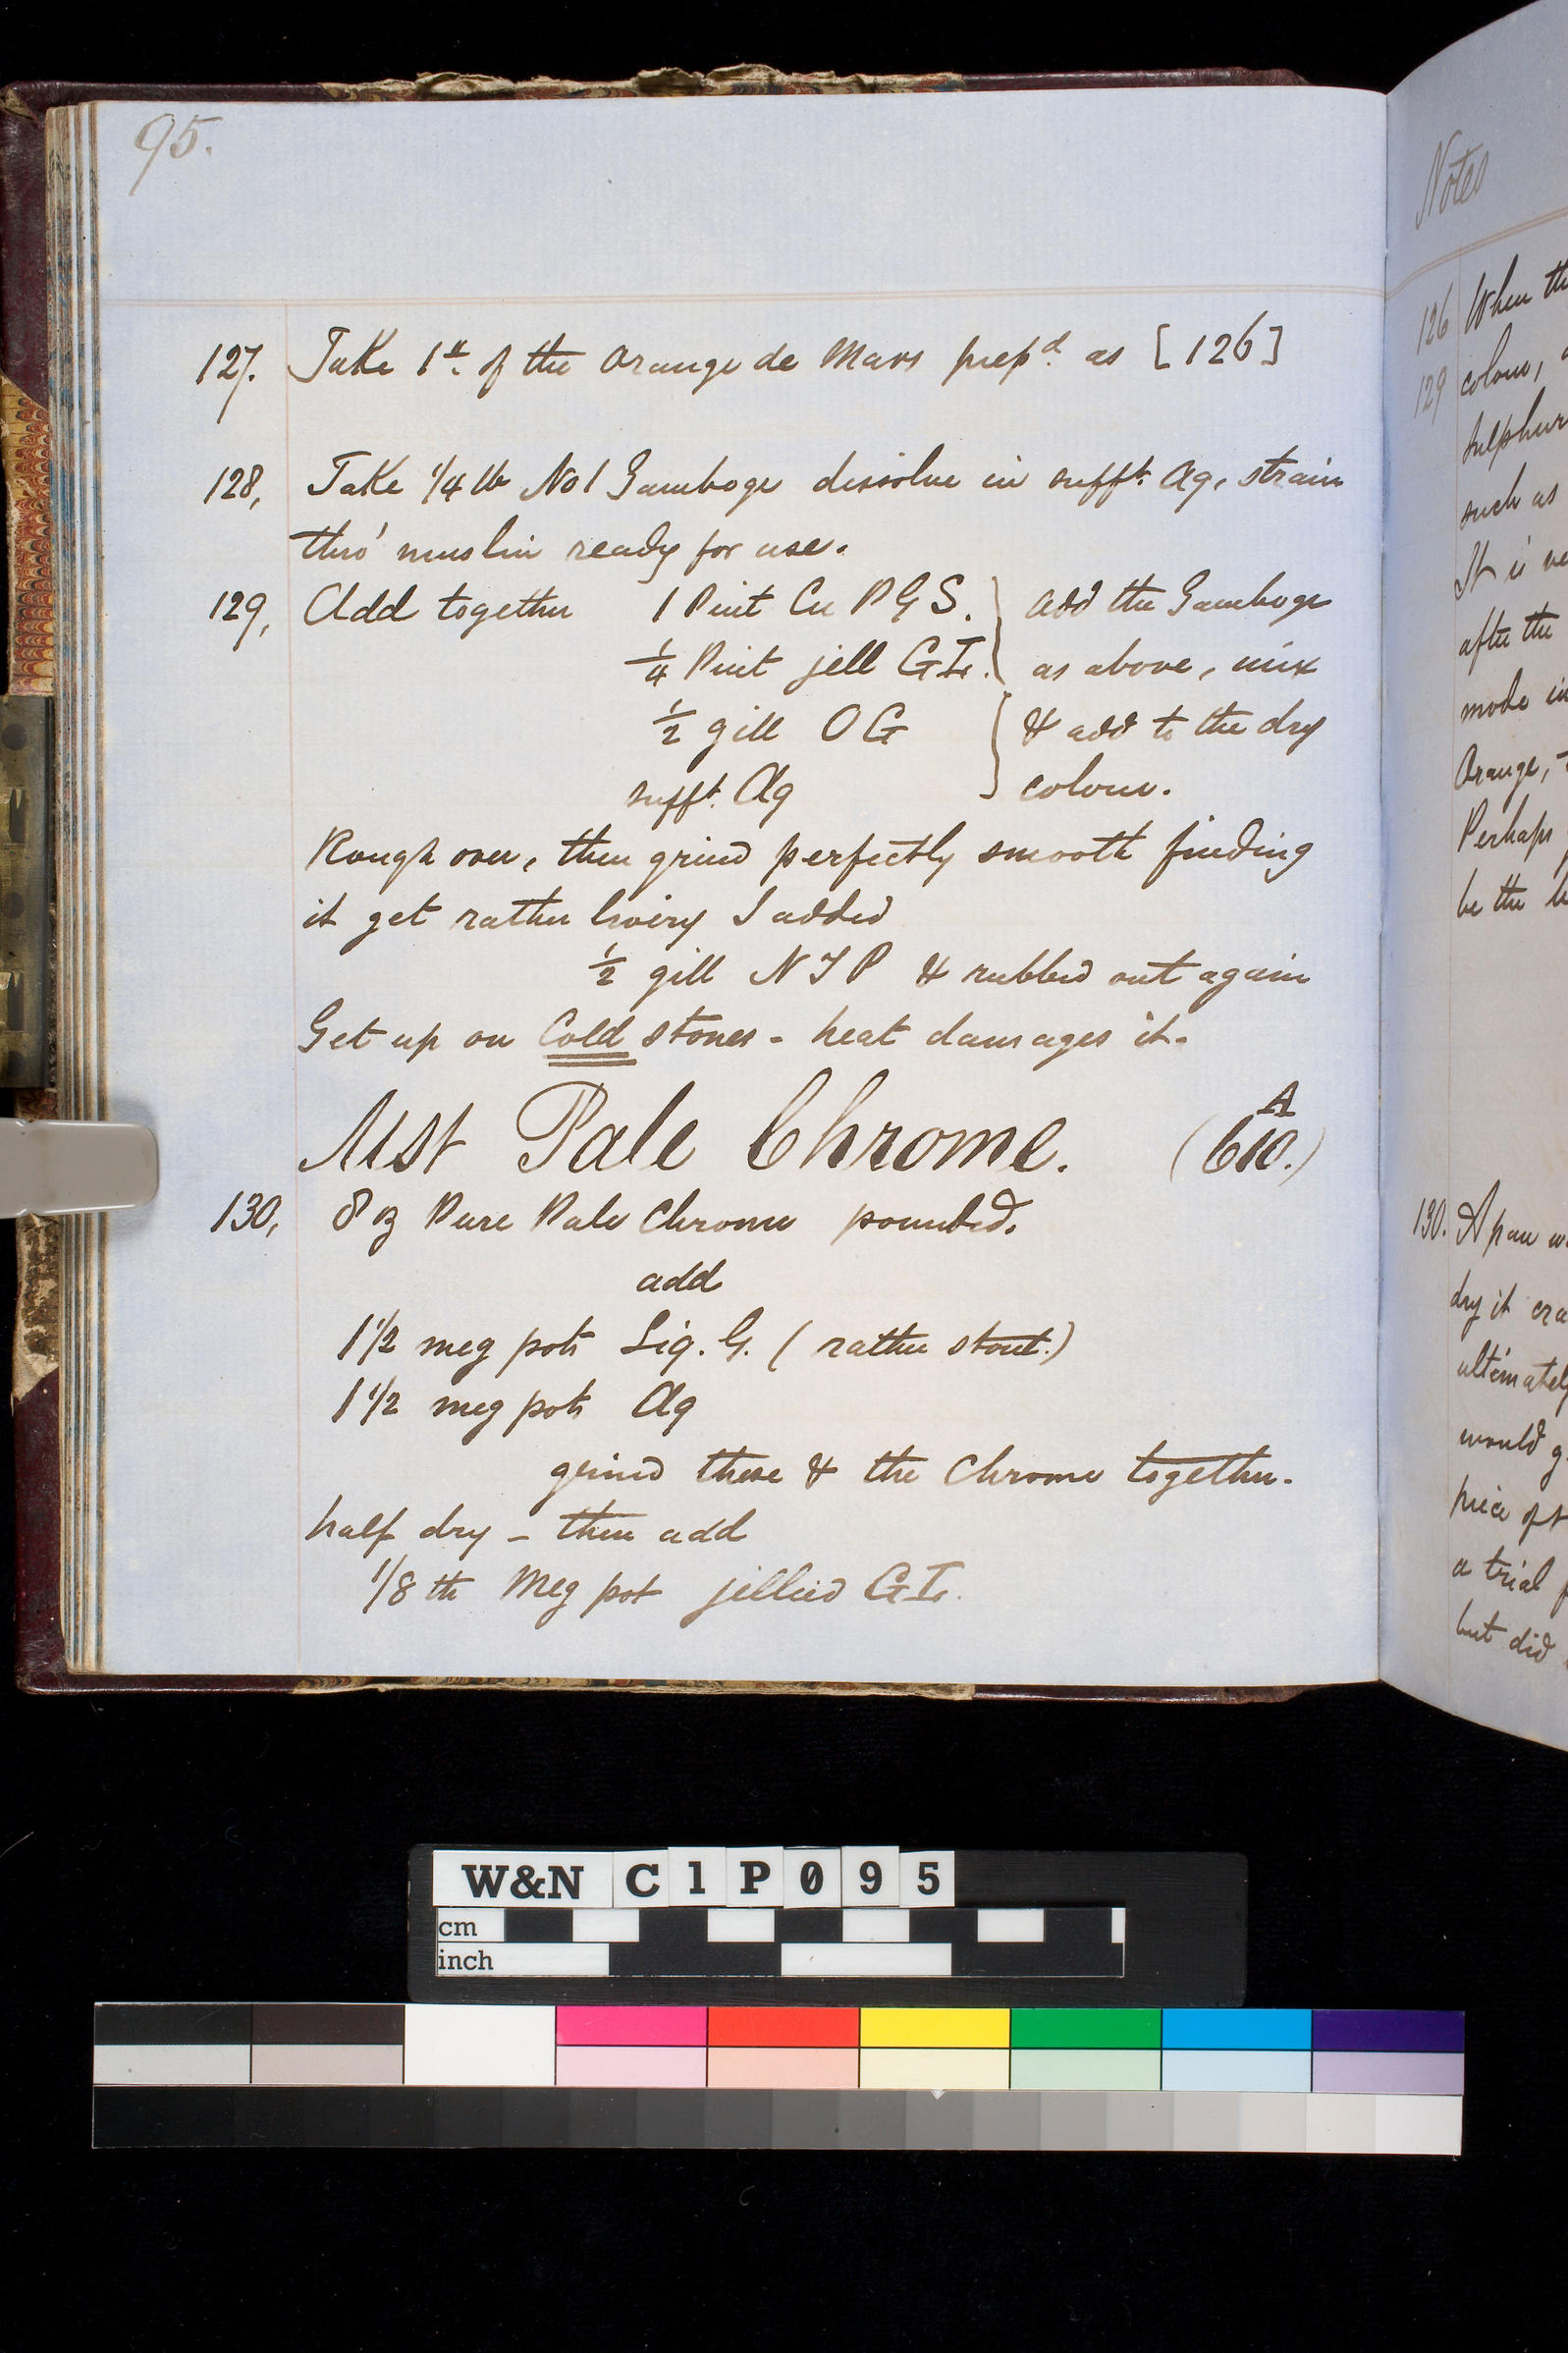 95.
127. Take 1 lb. of the Orange de Mars prepd. as [126]
128, Take 1/4 lb No 1 Gamboge dissolve in sufft. Aq, strain
thro' muslin ready for use.
129, Add together 1 Pint Cu P G S. add the Gamboge
1/4 Pint jell GL. as above, mix
1/2 gill O G & add to the dry
sufft. Aq colour.
Rough over, then grind perfectly smooth finding
it get rather livery I added
1/2 gill N T P & rubbed out again
Get up on Cold stones - heat damages it.
Mst Pale Chrome. (610.)
A
130, 8 oz Pure Pale Chrome pounded.
add
1 1/2 meg pots Liq. G. (rather stout.)
1 1/2 meg pots Aq
grind these & the Chrome together.
half dry - then add
1/8 th Meg pot jellied GL.
Notes
126 When
129 colour,
sulphur
such as
It is
after the
mode
Orange,
Perhaps
be the
130. A pan
dry it
ultimately
would
a trial
but did
W&N C1P095
cm
inch